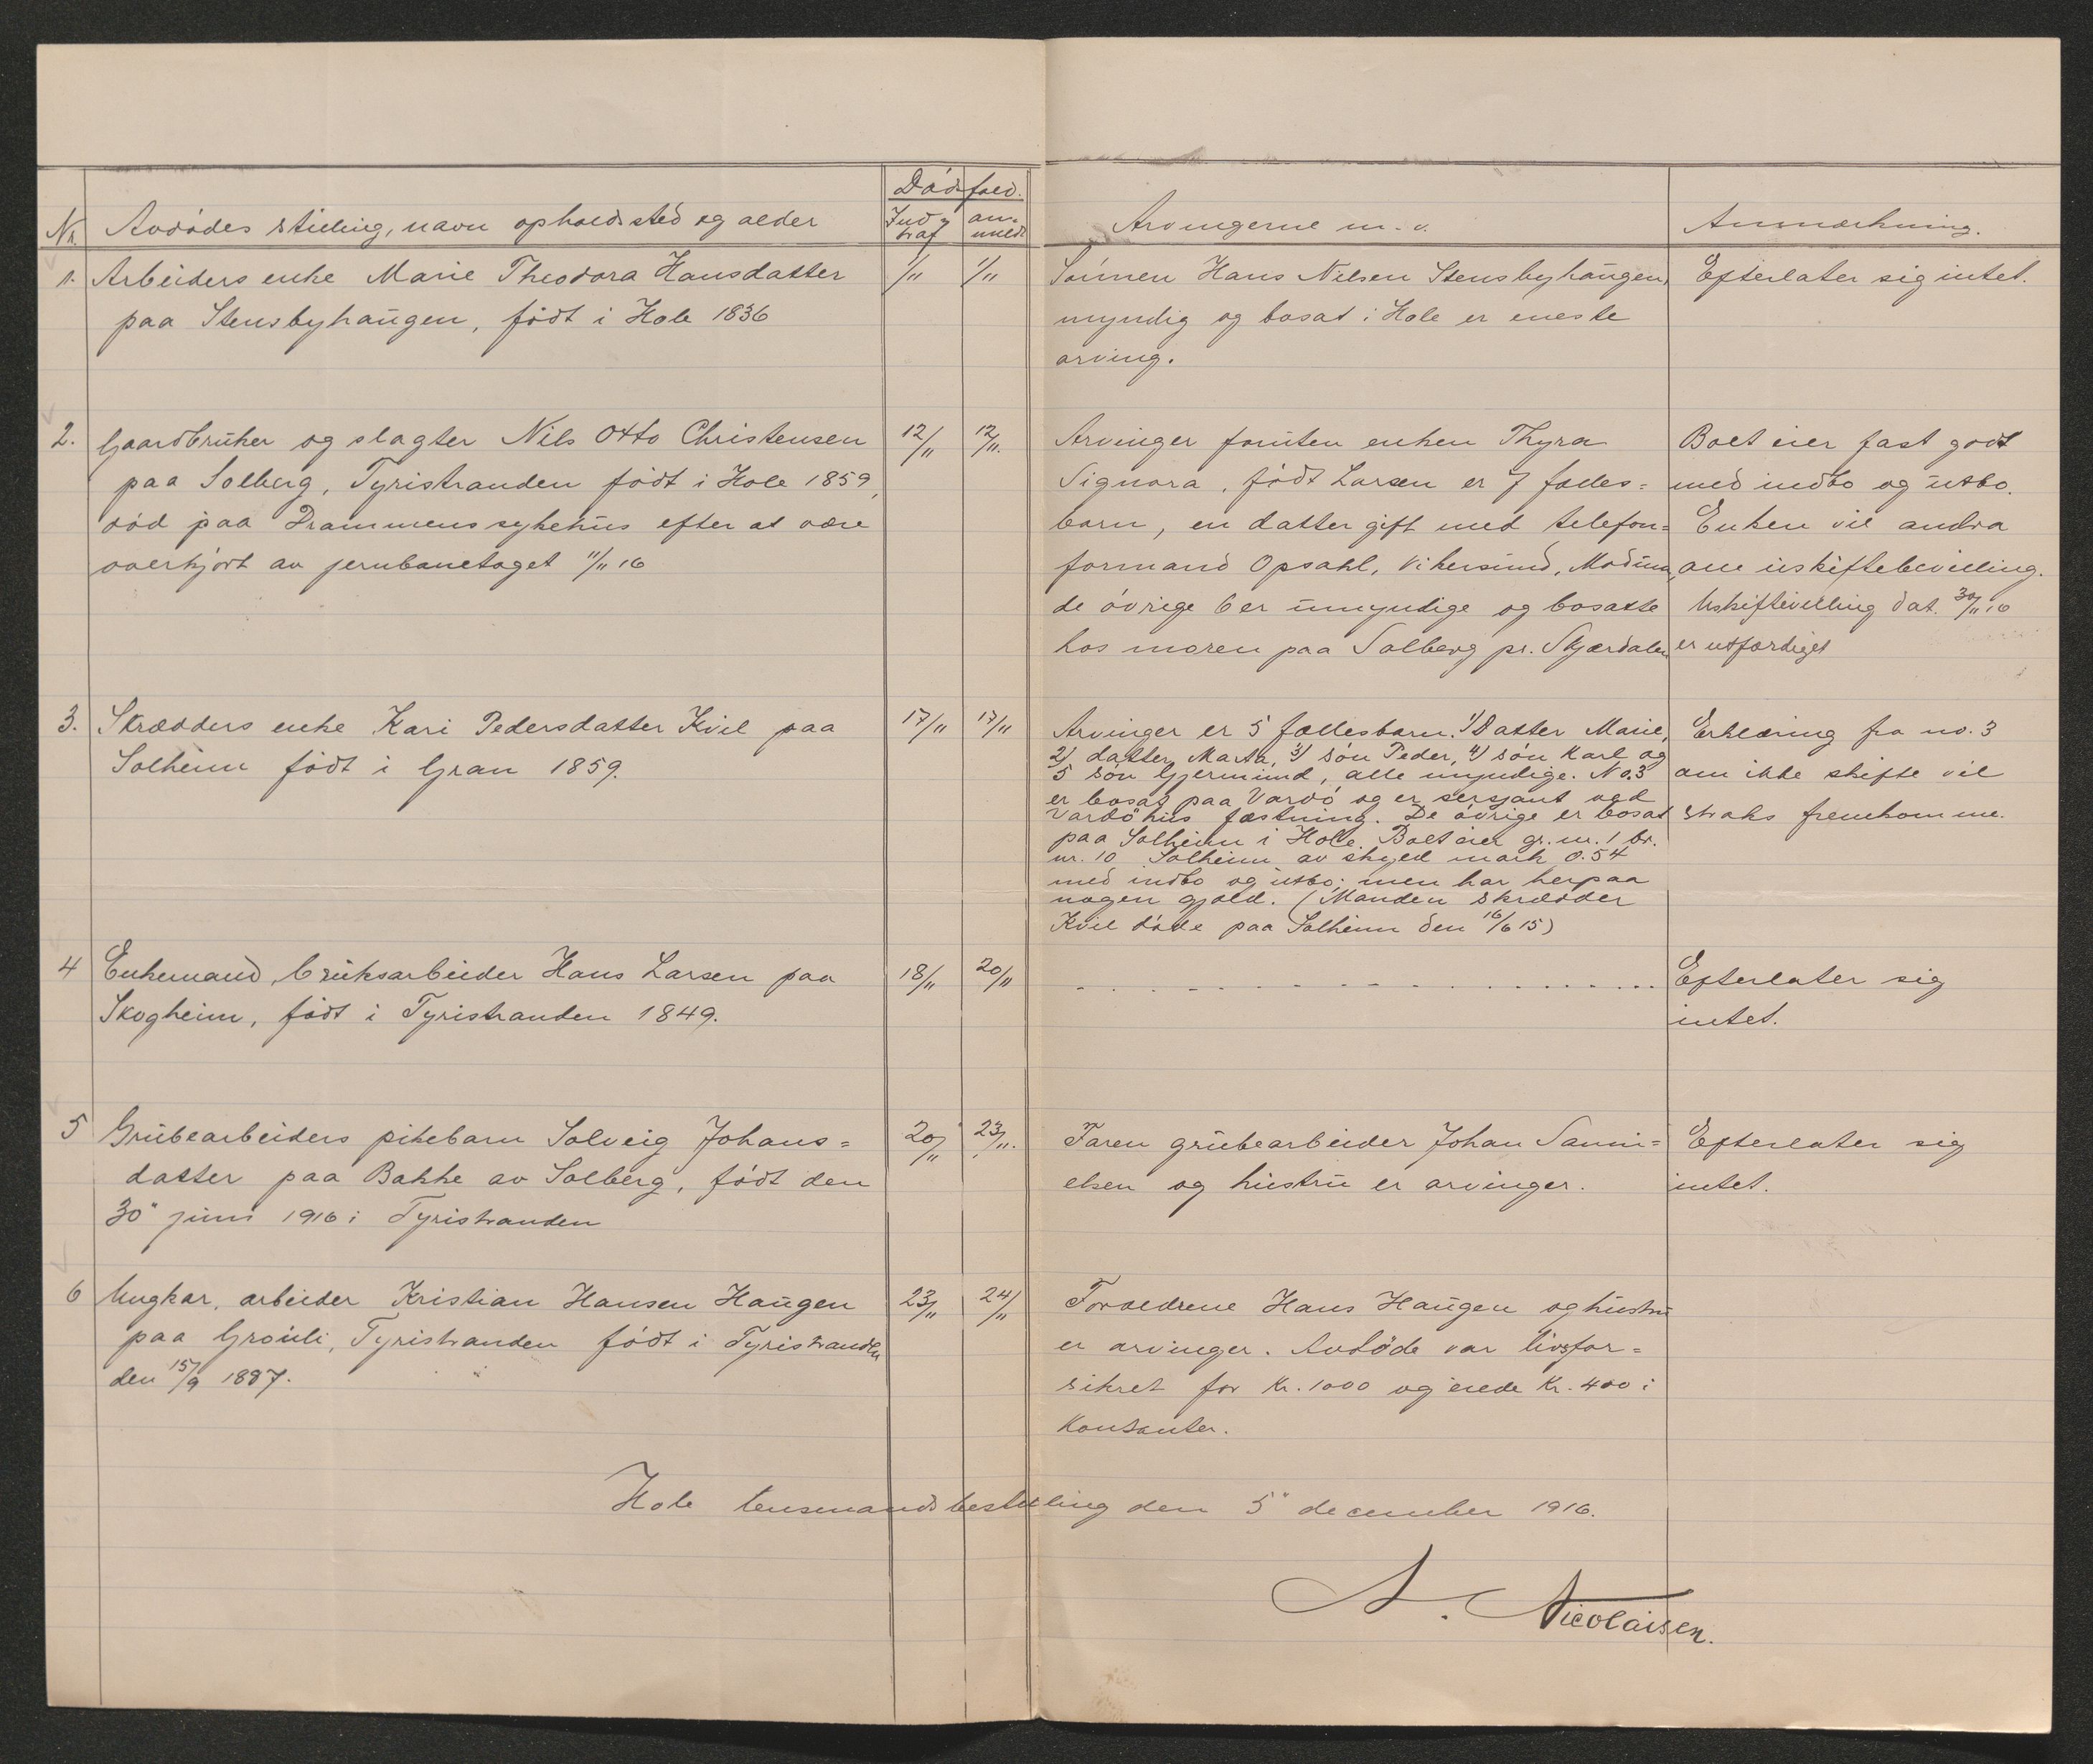 Dödsfald.
Nr. Avdödes stilling, navn opholdssted og alder Indtraf anmeldt Arvingerne m. v. Anmærkning.
1. Arbeiders enke Marie Theodora Hansdatter 1/11 1/11 Sönnen Hans Nilsen Stensbyhaugen, Efterlater sig intet.
paa Stensbyhaugen, födt i Hole 1836 myndig og bosat i Hole er eneste
arving.
2. Gaardbruker og slagter Nils Otto Christensen 12/11 12/11. Arvinger foruten enken Thyra Boet eier fast gods
paa Solberg, Tyristranden födt i Hole 1859, Signora, födt Larsen er 7 fælles= med indbo og utbo.
död paa Drammens sykehus efter at være barn, en datter gift med telefon= Enken vil andra
overkjört av jernbanetoget 11/11 16 formand Opsahl, Vikersund, Modum, om uskiftebevilling.
de övrige 6 er umyndige og bosatte Uskiftevilling dat. 30/11 16
hos moren paa Solberg pr. Skjærdalen er utfærdiget
3. Skrædders enke Kari Pedersdatter Kvil paa 17/11 17/11 Arvinger er 5 fællesbarn. 1/ Datter Marie, Erklæring fra no. 3
Solheim födt i Gran 1859. 2/ datter Marta, 3/ sön Peder, 4/ sön Karl og
5 sön Gjermund, alle myndige. No. 3 om ikke skifte vil
er bosat paa Vardö og er sersjant ved
Vardöhus fæstning. De övrige er bosat straks fremkomme.
paa Solheim i Hole. Boet eier gr. nr. 1 br.
nr. 10 Solheim av skyld mark 0.54
med indbo og utbo; men har herpaa
nogen gjæld. (Manden skrædder
Kvil döde paa Solheim den 16/6 15)
4 Enkemand, bruksarbeider Hans Larsen paa 18/11 20/11 - - - - - - - - - - - - - - - - Efterlater sig
Skogheim, födt i Tyristranden 1849. intet.
5 Grubearbeiders pikebarn Solveig Johans= 20/11 23/11. Faren grubearbeider Johan Samu= Efterlater sig
datter paa Bakke av Solberg, födt den elsen og hustru er arvinger. intet.
30" juni 1916 i Tyristranden
6 Ungkar, arbeider Kristian Hansen Haugen 23/11 24/11 Forældrene Hans Haugen og hustru
paa Grouli, Tyristranden födt i Tyristranden er arvinger. Avdöde var livsfor=
den 15/9 1887. sikret for Kr. 1000 og eiede Kr. 400 i
kontanter.
Hole lensmandsbestilling den 5" december 1916.
N. Nicolaisen.